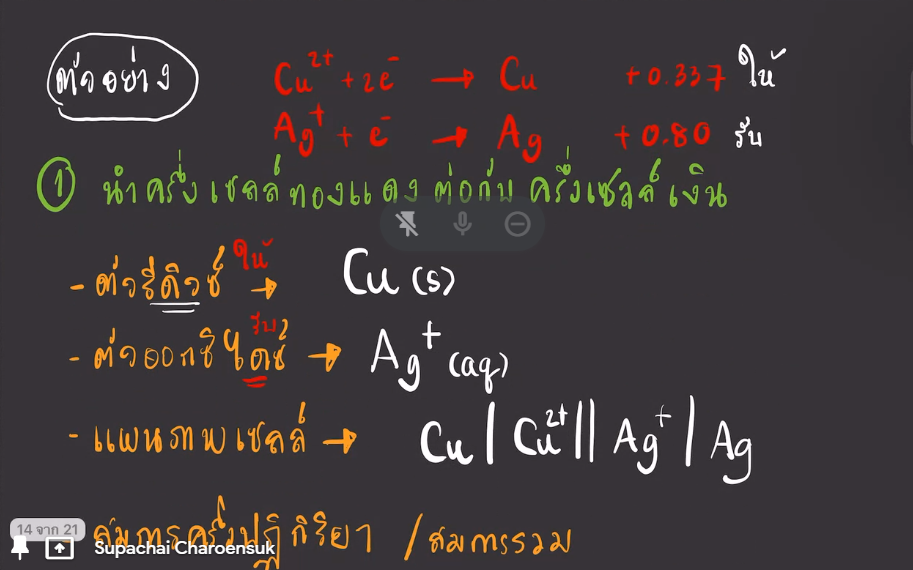 ตัวอย่าง
Cu²⁺ + 2e⁻ → Cu +0.337 ให้
Ag⁺ + e⁻ → Ag +0.80 รับ
① นำครึ่งเซลล์ทองแดงต่อกับครึ่งเซลล์เงิน
ให้
- ตัวรีดิวซ์ → Cu (s)
รับ
- ตัวออกซิไดซ์ → Ag⁺ (aq)
- แผนภาพเซลล์ → Cu | Cu²⁺ || Ag⁺ | Ag
14 จาก 21
สมการครึ่งปฏิกิริยา / สมการรวม
Supachai Charoensuk